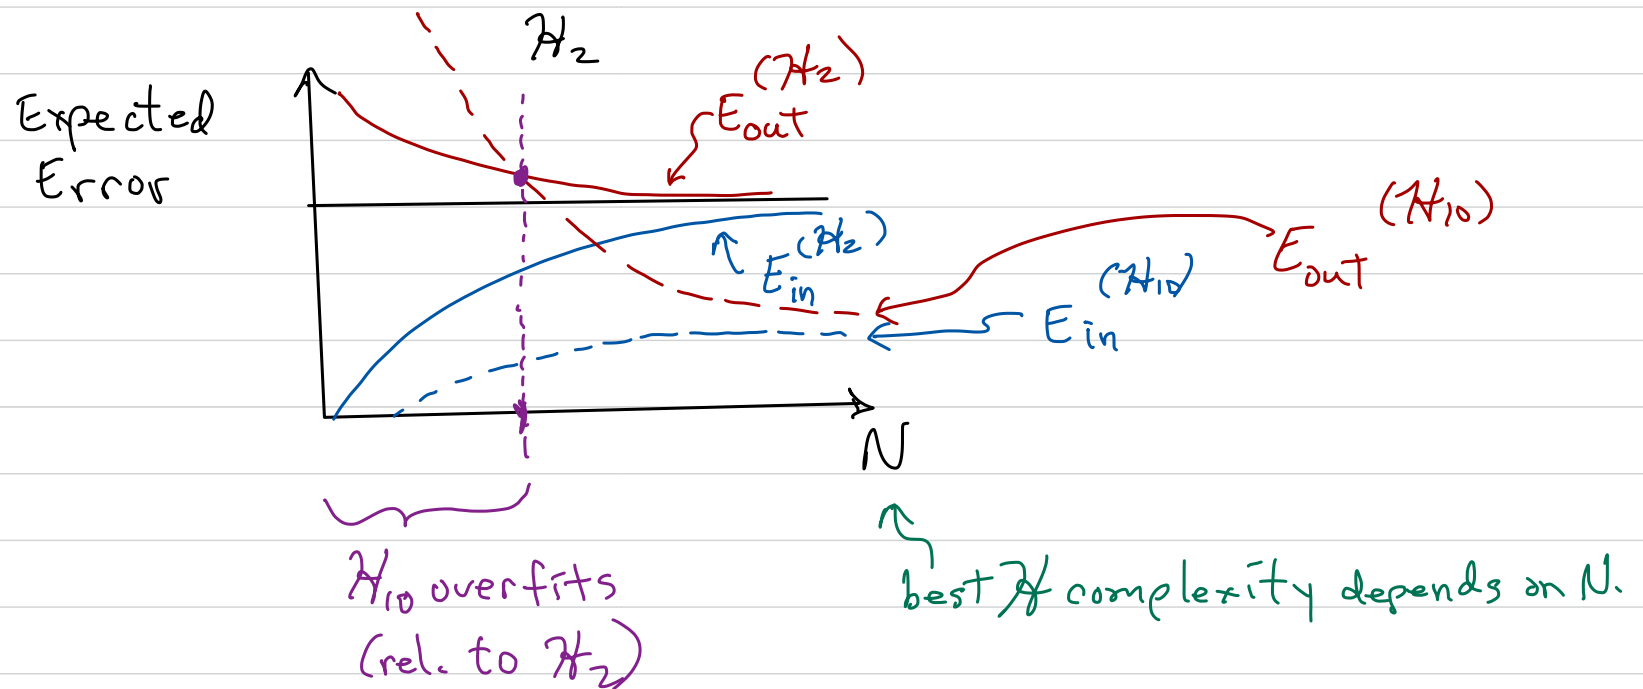 ℋ₂
(ℋ₂)
Expected
Error
E_out
(ℋ₁₀)
(ℋ₂)
E_in
E_out
(ℋ₁₀)
E_in
N
ℋ₁₀ overfits
(rel. to ℋ₂)
best ℋ complexity depends on N.